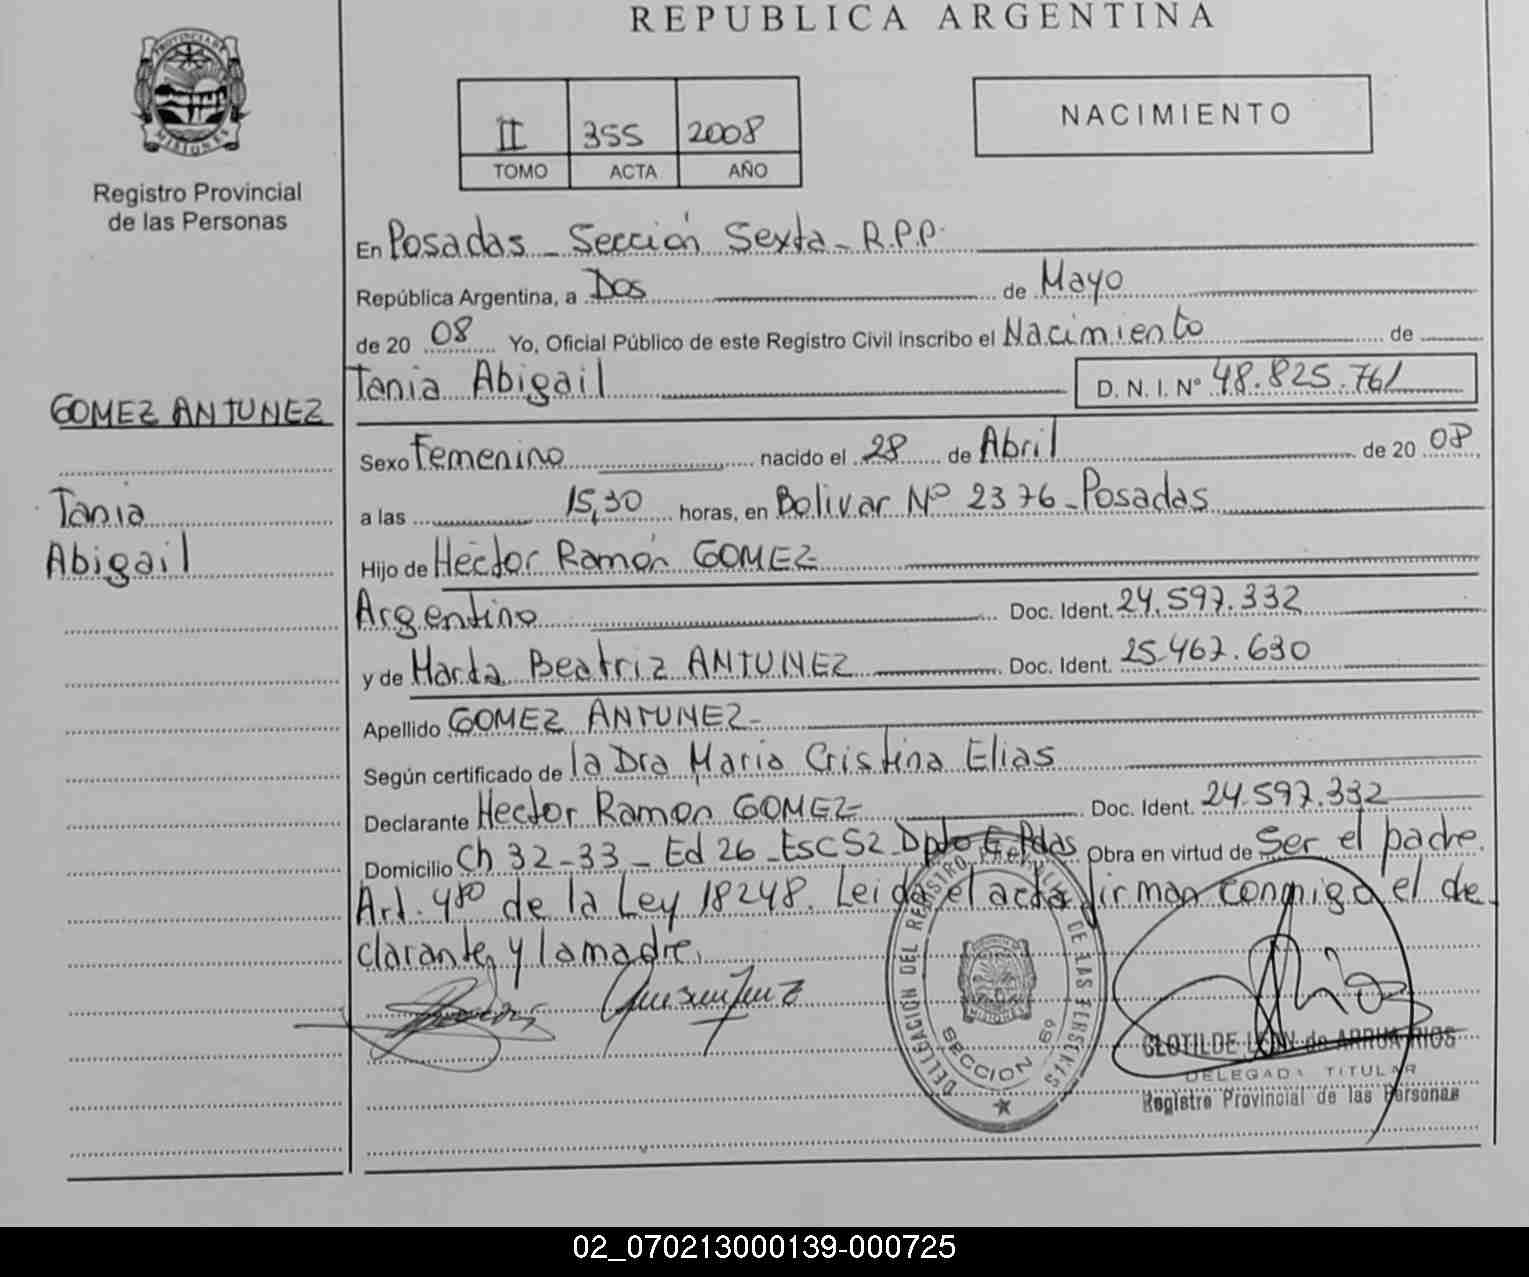 REPUBLICA ARGENTINA
PROVINCIA DE
MISIONES
Registro Provincial
de las Personas
II 355 2008
TOMO ACTA AÑO
NACIMIENTO
En Posadas - Sección Sexta - R.P.P.
República Argentina, a Dos de Mayo
de 20 08 Yo, Oficial Público de este Registro Civil inscribo el Nacimiento de
Tania Abigail D. N. I. Nº 48.825.761
GOMEZ ANTUNEZ
Sexo Femenino nacido el 28 de Abril de 20 08
Tania
a las 15,30 horas, en Bolivar Nº 2376 - Posadas
Abigail
Hijo de Héctor Ramón GOMEZ
Argentino Doc. Ident. 24.597.332
y de Marta Beatriz ANTUNEZ Doc. Ident. 25.467.630
Apellido GOMEZ ANTUNEZ -
Según certificado de la Dra Maria Cristina Elias
Declarante Hector Ramon GOMEZ Doc. Ident. 24.597.332
Domicilio Ch 32-33 - Ed 26 - Esc 52 - Dpto Pdas Obra en virtud de Ser el padre.
Art. 4to de la Ley 18248. Leida el acta firman conmigo el de
clarante y la madre.
DELEGACIÓN DEL REGISTRO DE LAS PERSONAS
SECCION
CLOTILDE de ARRUA RIOS
DELEGADA TITULAR
Registro Provincial de las Personas
02_070213000139-000725